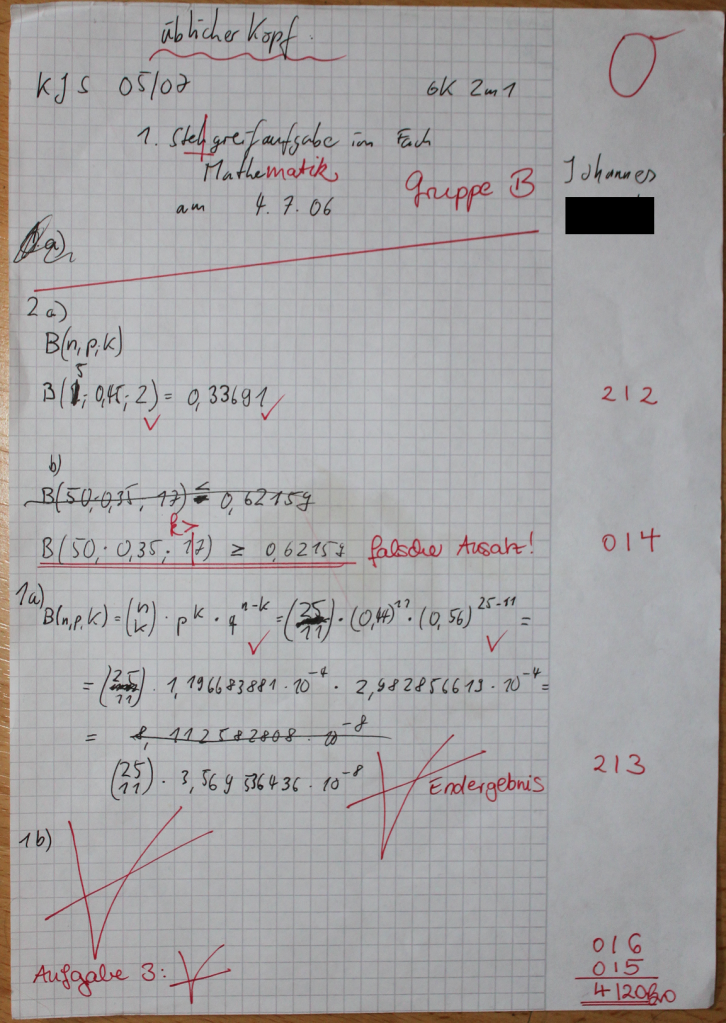 üblicher Kopf.
KJS 05/07 GK 2m1
1. Stehgreifaufgabe im Fach
Mathematik
am 4.7.06
Gruppe B
Johannes
a)
2a)
B(n, p, k)
B(5; 0,45; 2) = 0,33691
2/2
b)
B(50, 0,35, 17) ≤ 0,62159
k>
B(50; 0,35; 17) ≥ 0,62159 falsche Ansatz!
0/4
1a)
B(n, p, k) = (n k) · p^k · q^n-k = (25 11) · (0,44)^11 · (0,56)^25-11 =
= (25 11) · 1,196683881 · 10^-4 · 2,982856613 · 10^-4 =
= 8,112582808 · 10^-8
(25 11) · 3,569536436 · 10^-8
Endergebnis
2/3
1b)
0/6
Aufgabe 3:
0/5
4/20